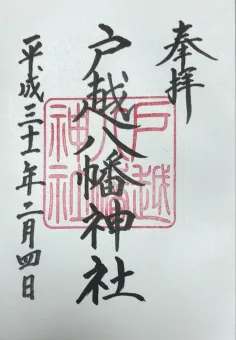 奉拝
戸越八幡神社
戸越
八幡
神社
平成三十一年二月四日